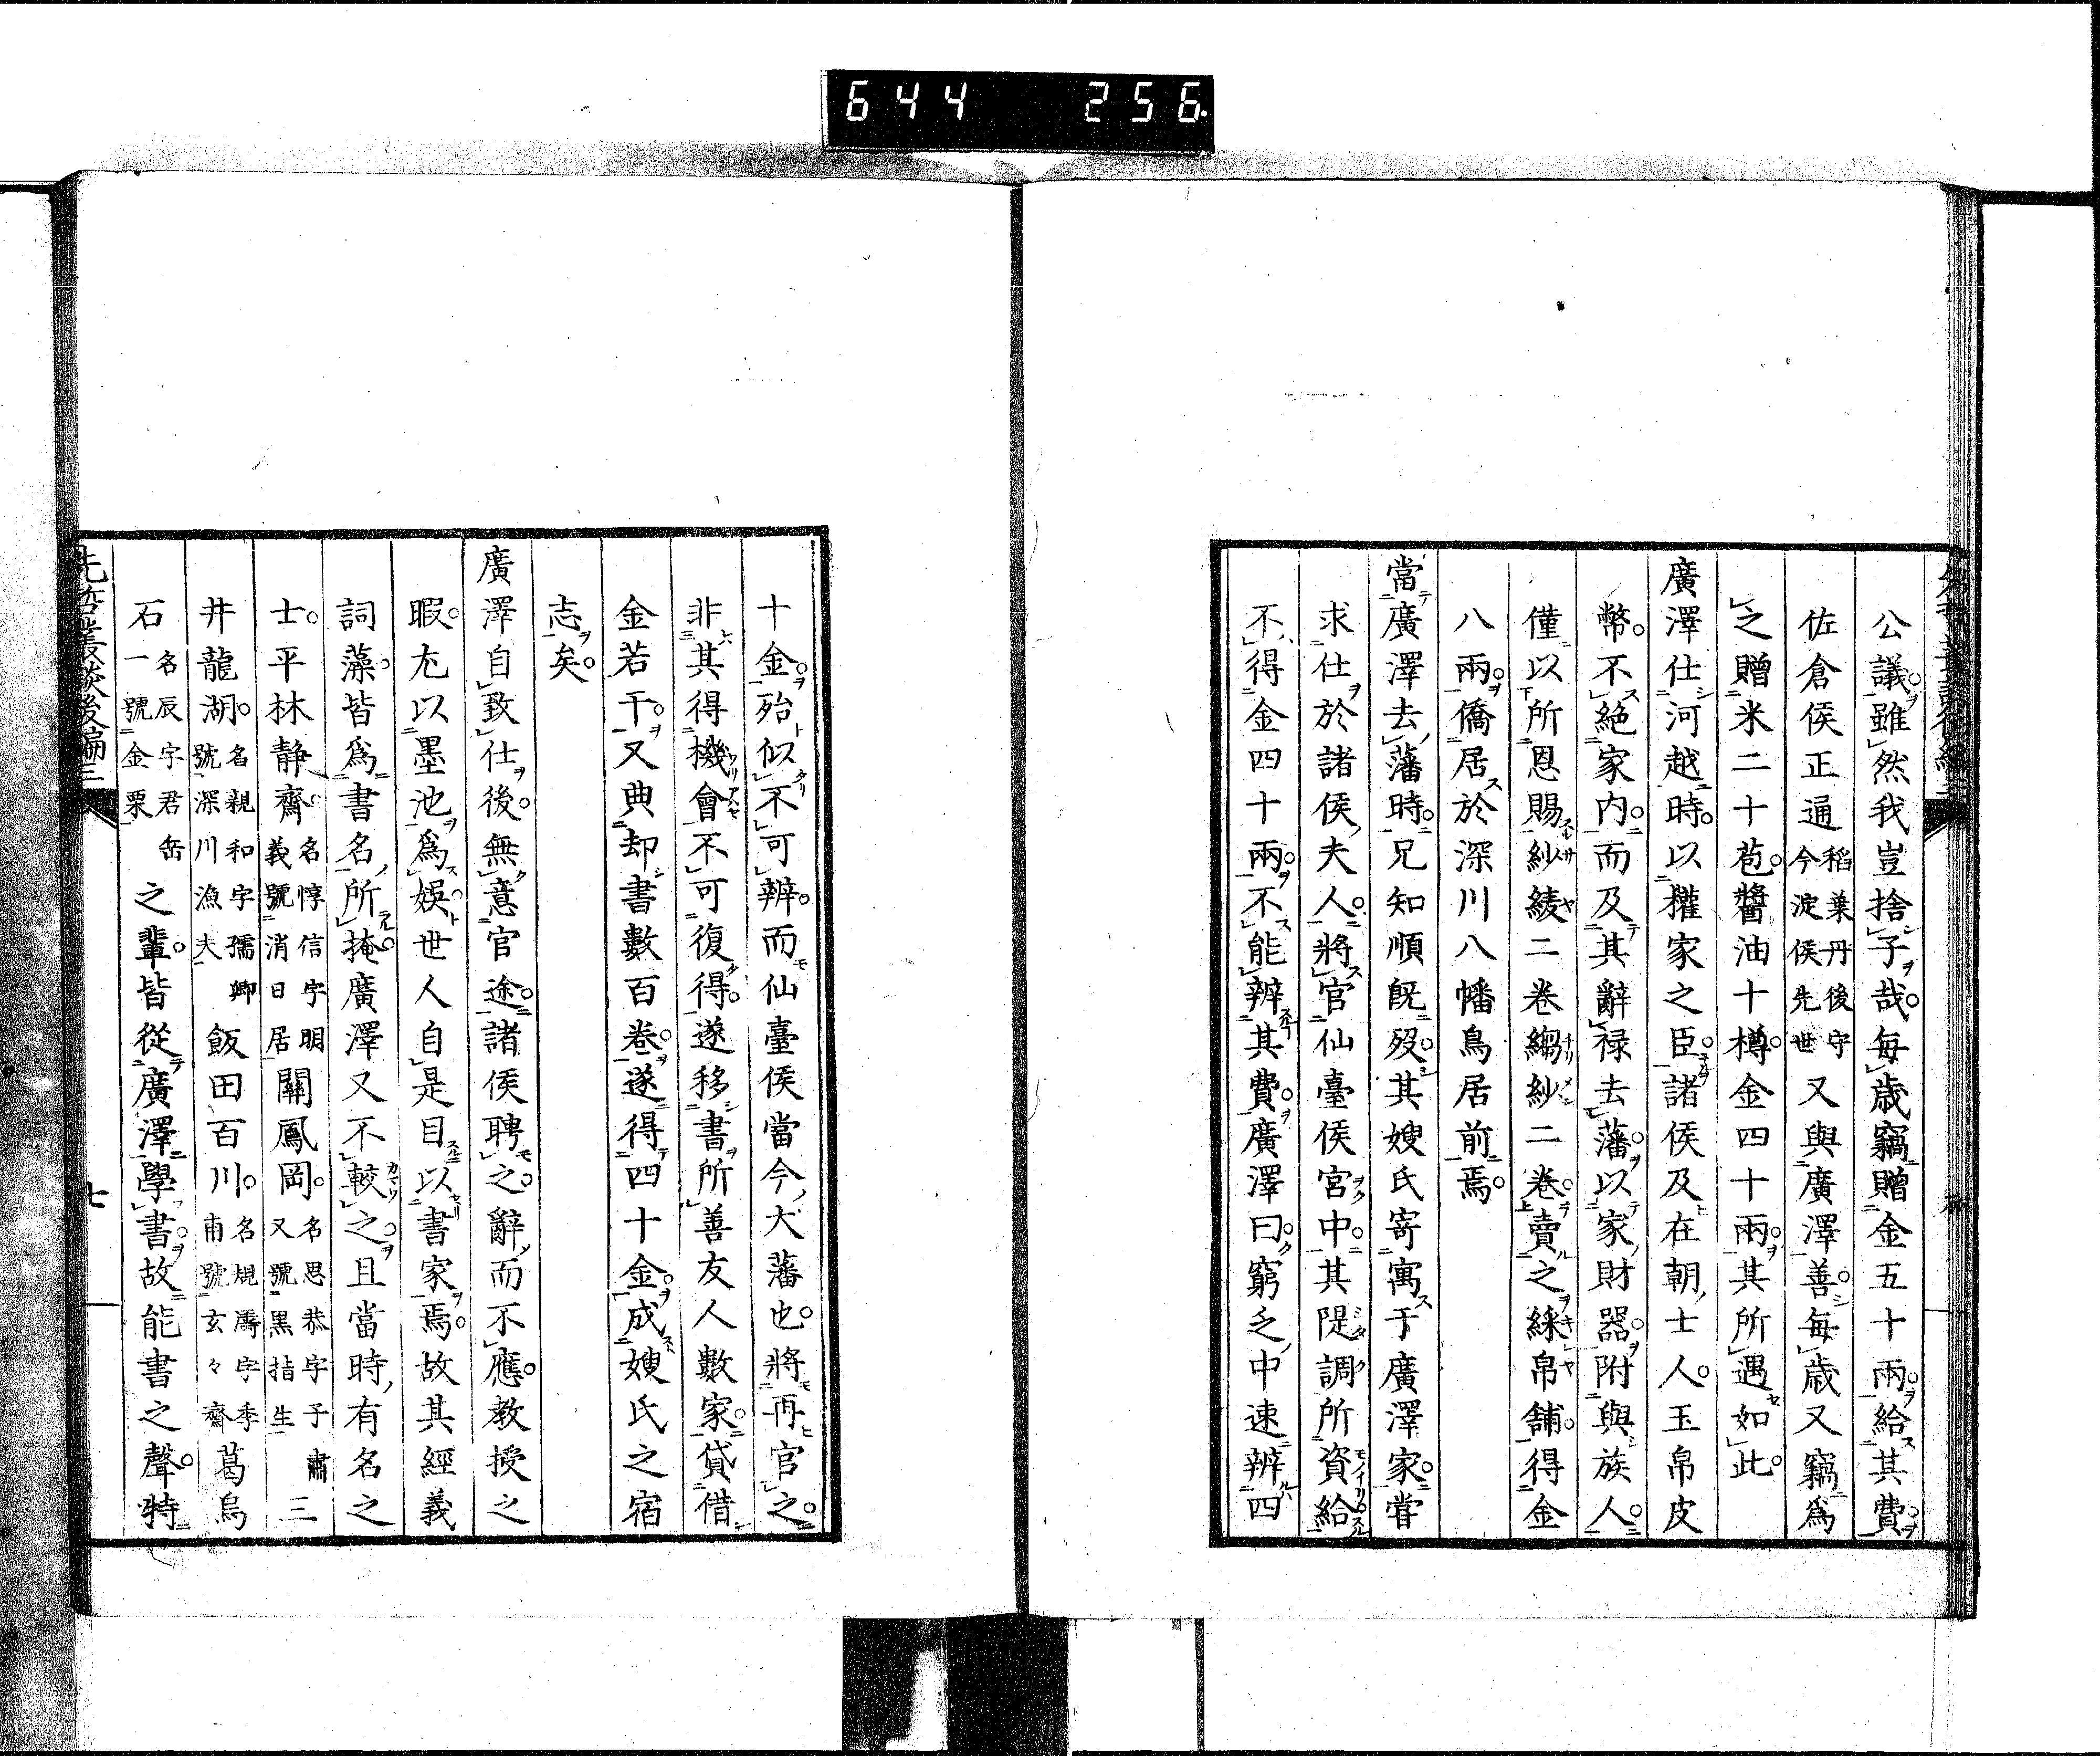 644 256
公議雖然我豈捨子哉每歲竊贈金五十兩給其費
佐倉侯正通稻葉丹後守今淀侯先世又與廣澤善每歲又竊爲
之贈米二十苞醬油十樽金四十兩其所遇如此
廣澤仕河越時以權家之臣諸侯及在朝士人玉帛皮
幣不絕家内而及其辭祿去藩以家財器附與族人
僅以所恩賜紗綾二卷縐紗二卷賣之綵帛舖得金
八兩僑居於深川八幡鳥居前焉
當廣澤去藩時兄知順既歿其嫂氏寄寓于廣澤家嘗
求仕於諸侯夫人將官仙臺侯宮中其隄調所資給
不得金四十兩不能辨其費廣澤曰窮乏中速辨四
十金殆似不可辨而仙臺侯當今大藩也將再官之
非其得機會不可復得遂移書所善友人數家貸借
金若干又典却書數百卷遂得四十金成嫂氏之宿
志矣
廣澤自致仕後無意官途諸侯聘之辭而不應教授之
暇尤以墨池爲娛世人自是目以書家焉故其經義
詞藻皆爲書名所掩廣澤又不較之且當時有名之
士平林靜齋名惇信字明義號消日居關鳳岡名思恭字子肅又號黑指生三
井龍湖名親和字孺卿號深川漁夫飯田百川名規膺字季甫號玄々齋葛烏
石名辰字君岳一號金栗之輩皆從廣澤學書故能書之聲特
先哲叢談後編三
七